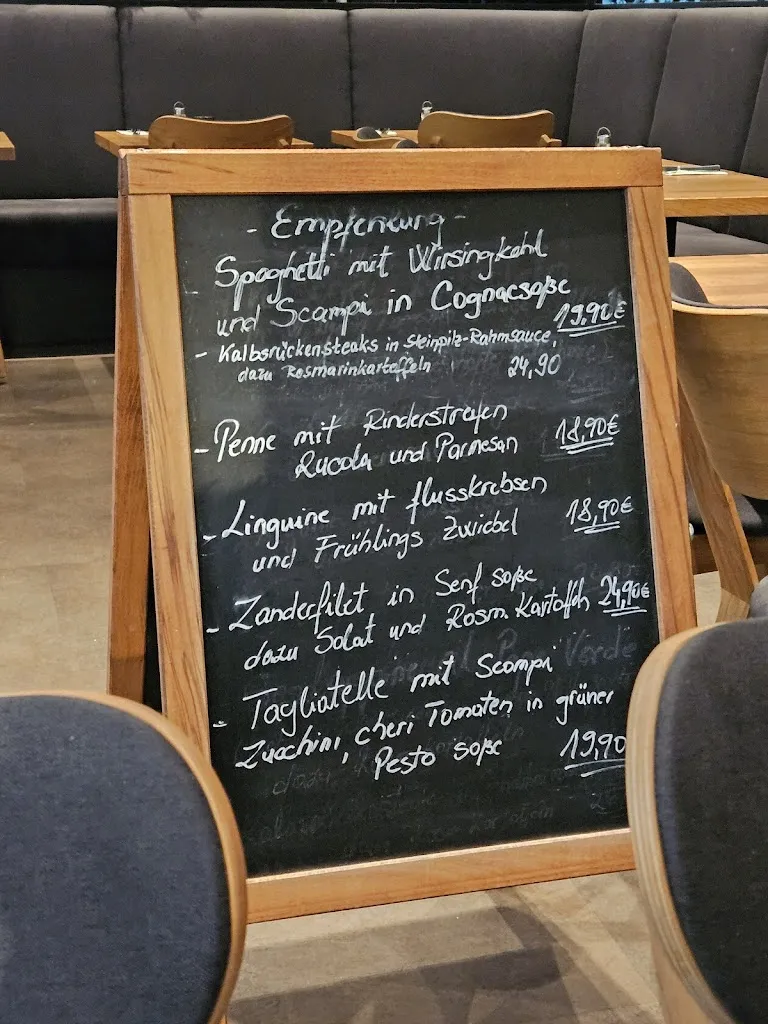 - Empfehlung -
- Spaghetti mit Wirsingkohl
und Scampi in Cognacsoße
19,90€
- Kalbsrückensteaks in Steinpilz-Rahmsauce,
dazu Rosmarinkartoffeln 24,90
- Penne mit Rinderstreifen
Rucola und Parmesan 18,90€
- Linguine mit flusskrebsen
und Frühlings Zwiebel 18,90€
- Zanderfilet in Senf soße
dazu Salat und Rosm. Kartoffeln 24,90€
- Tagliatelle mit Scampi
Zucchini, cheri Tomaten in grüner
Pesto soße 19,90